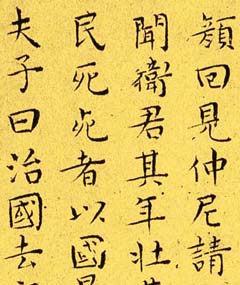 顏回見仲尼請
聞衛君其年壯
民死死者以國
夫子曰治國去